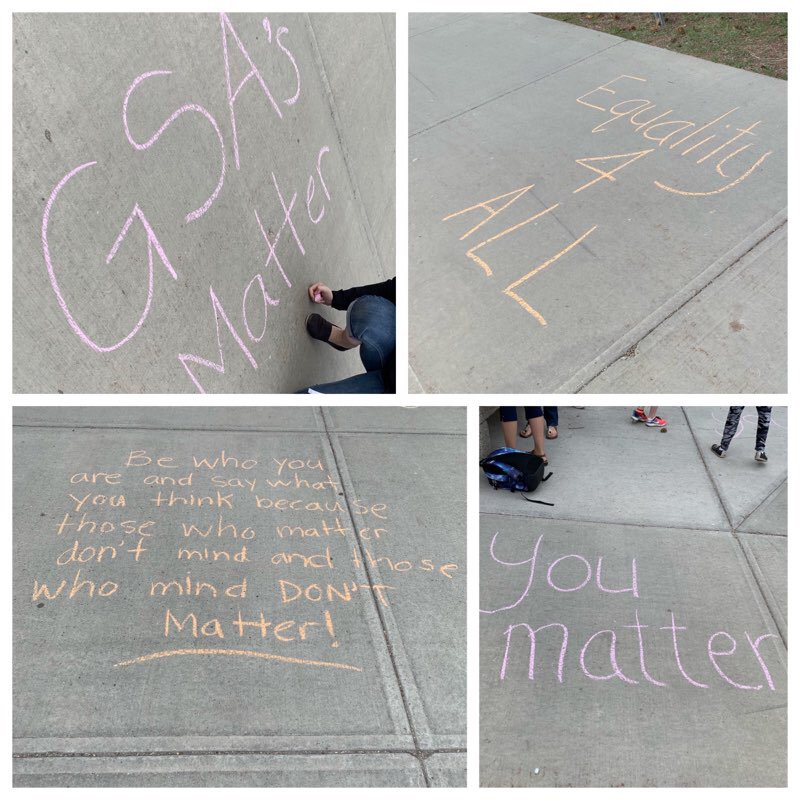 GSA's
Matter
Equality
4
ALL
Be who you
are and say what
you think because
those who matter
don't mind and those
who mind DON'T
Matter!
You
matter